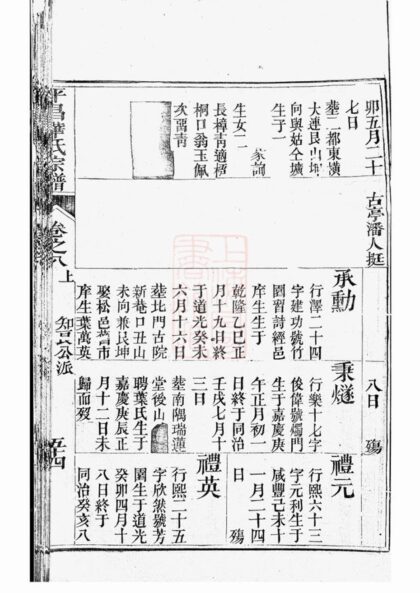 卯五月二十
七日
葬二都東橫
大連艮山坤
向與姑仝壙
生子一
家詢
生女一
長樟靑適梧
桐口翁玉佩
次靑
古亭潘人挺
八日
殤
承勳
行澤二十四
字建功號竹
園習詩經邑
庠生生于
乾隆乙巳正
月十九日終
于道光癸未
六月十六日
葬北門古院
新庵口丑山
未向兼艮坤
娶松邑市
庠生葉萬英
秉燧
行樂十七字
俊偉號燭門
生于嘉慶庚
午正月初一
日終于同治
壬戌七月十
三日
葬南隅瑞蓮
堂後山
聘葉氏生于
嘉慶庚辰正
月十二日未
歸而歿
禮元
行熙六十三
字元利生于
咸豐己未十
一月二十四
日
殤
禮英
行熙二十五
字欣然號芳
園生于道光
癸卯四月十
八日終于
同治癸亥八
平昌華氏宗譜
卷之八
上
知公派
五十四